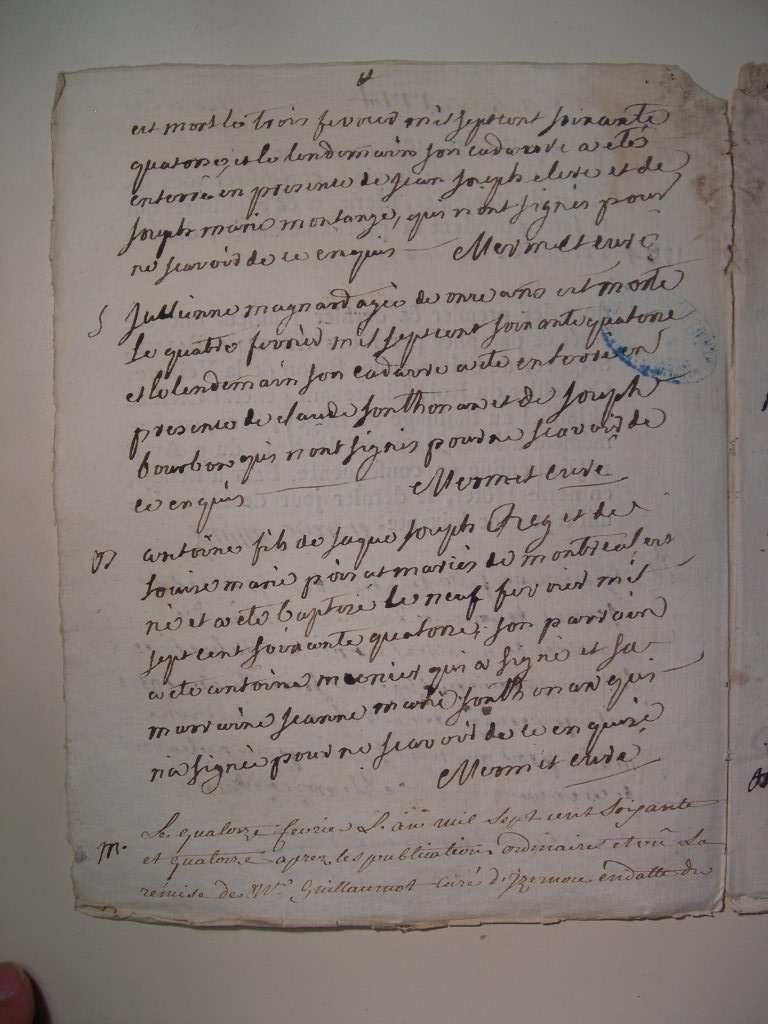 est mort le trois fevrier mil sept cent soixante
quatorze, et le lendemain son cadavre a eté
enterré en presence de jean joseph clerc et de
joseph marie montange, qui n'ont signés pour
ne scavoir de ce enquis Mermet curé
S jullienne magnard agée de onze ans est morte
le quatre fevrier mil sept cent soixante quatorze
et le lendemain son cadavre a eté enterre en
presence de claude sonthonax et de joseph
bourbon qui n'ont signés pour ne scavoir de
ce enquis Mermet curé
B antoine fils de jaque joseph Rey et de
louise marie mariés de montreal est
né et a eté baptisé le neuf fevrier mil
sept cent soixante quatorze, son parrain
a eté antoine meunier qui a signé et sa
marraine jeanne marie sonthonax qui
n'a signée pour ne scavoir de ce enquise
Mermet curé
M. Le quatorze fevrier L'an mil sept cent soixante
et quatorze aprez les publications ordinaires et vû La
remise de Mre Guillaumot curé d'Izernore en datte du